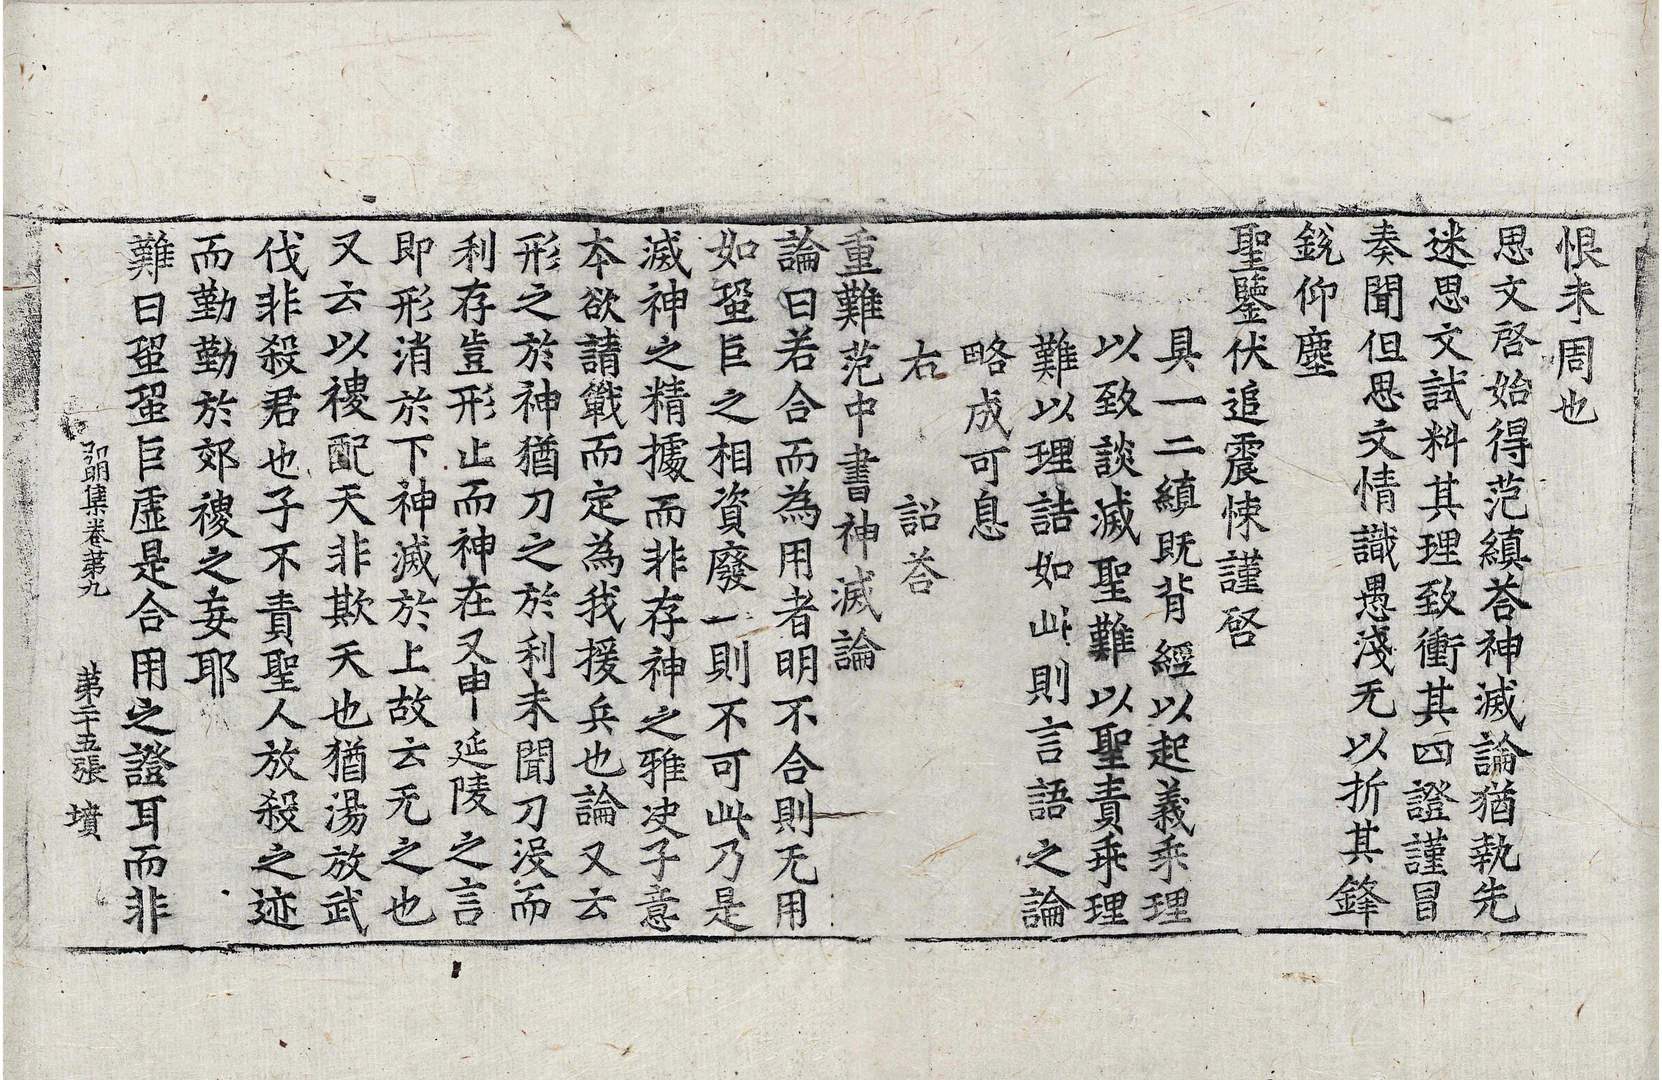 恨未周也
思文啓始得范縝荅神滅論猶執先
迷思文試料其理致衝其四證謹冒
奏聞但思文情識愚淺无以折其鋒
銳仰塵
聖鑒伏追震悚謹啓
具一二縝既背經以起義乖理
以致談滅聖難以聖責乖理
難以理詰如此則言語之論
略成可息
右 詔荅
重難范中書神滅論
論曰若合而為用者明不合則无用
如蛩巨之相資廢一則不可此乃是
滅神之精據而非存神之雅决子意
本欲請戰而定為我援兵也論又云
形之於神猶刀之於利未聞刀沒而
利存豈形止而神在又申延陵之言
即形消於下神滅於上故云无之也
又云以禝配天非欺天也猶湯放武
伐非殺君也子不責聖人放殺之迹
而勤勤於郊禝之妄耶
難曰蛩蛩巨虛是合用之證耳而非
弘明集卷第九 第二十五張 墳